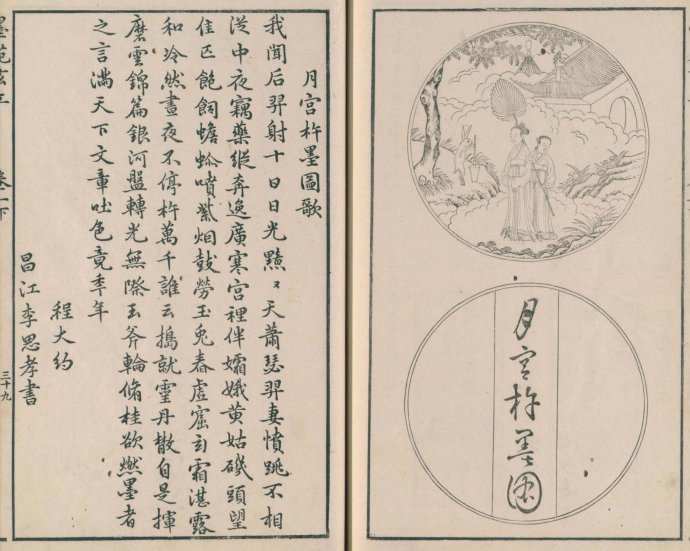 月宮杵墨圖
月宮杵墨圖歌
我聞后羿射十日日光黯〻天蕭瑟羿妻憤跳不相
從中夜竊藥縱奔逸廣寒宮裡伴孀娥黃姑磯頭望
佳匹飽飼蟾蜍噴紫烟鼓勞玉兔舂虛窟勻霜湛露
和泠然晝夜不停杵萬千誰云搗就靈丹散自是揮
磨雲錦篇銀河盤轉光無際玉斧輪脩桂欲燃墨者
之言滿天下文章吐色竟季年
程大約
昌江李思孝書
墨苑玄工
卷一下
三十九